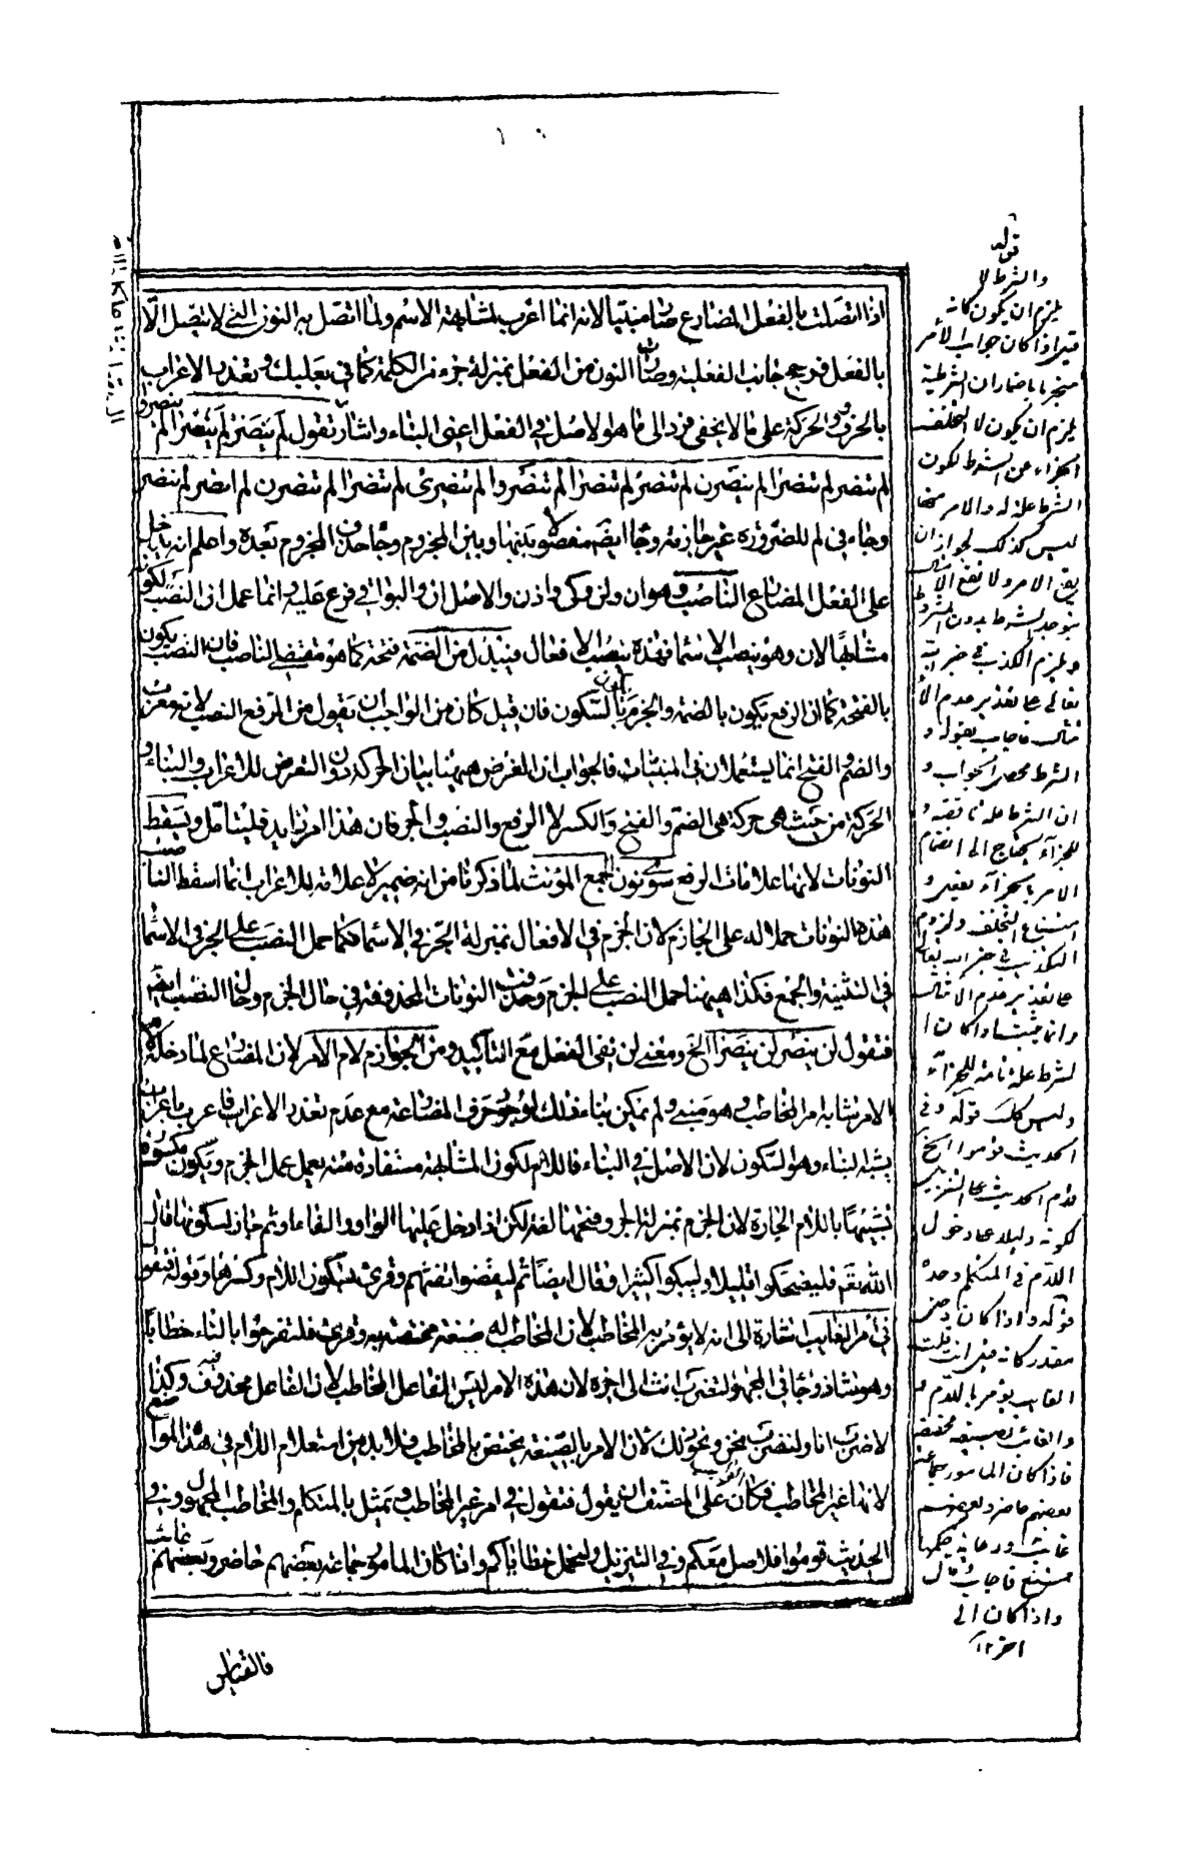 اذا اتصلت بالفعل المضارع صار مبنيا لانه انما اعرب لمشابهته الاسم ولما اتصل به النون التى لا يتصل الا
بالفعل فرجح جانب الفعلية وصار النون من الفعل بمنزلة جزء من الكلمة كما في بعلبك وتعذر الاعراب
بالحرف والحركة على ما لا يخفى فرد الى ما هو الاصل في الفعل اعنى البناء واشار تقول لم ينصر لم ينصرا لم ينصروا
لم تنصر لم تنصرا لم ينصرن لم تنصر لم تنصرا لم تنصروا لم تنصرى لم تنصرا لم تنصرن لم انصر لم ننصر
وجاء في لم للضرورة غير جازمة وجاء ايضا مفصولا بينها وبين المجزوم وجاء حذف المجزوم بعده واعلم انه يدخل
على الفعل المضارع الناصب وهو ان ولن وكى واذن والاصل ان والبواقى فرع عليه وانما عمل ان النصب لكونه
مشابها لان وهو ينصب الاسماء فهذه ينصب الافعال فيبدل من الضمة فتحة كما هو مقتضى الناصب فان النصب يكون
بالفتحة كما ان الرفع يكون بالضمة والجزم يكون بالسكون فان قيل كان من الواجب ان يقول من الرفع النصب لانه معرب
والضم والفتح انما يستعملان في المبنيات فالجواب ان الغرض ههنا بيان الحركة دون التعرض للاعراب والبناء و
الحركة من حيث هى حركة هى الضم والفتح والكسر لا الرفع والنصب والجر فان هذا امر زايد فليتأمل ويسقط
النونات لانها علامات الرفع سوى نون الجمع المؤنث لما ذكرنا من انه ضمير لا علامة للاعراب انما اسقط الناصب
هذه النونات حملا له على الجازم لان الجزم في الافعال بمنزلة الجر في الاسماء فكما حمل النصب على الجر في الاسماء
في التثنية والجمع فكذا ههنا حمل النصب على الجزم وحذفت النونات المحذوفة في حال الجزم وحال النصب ايضا
فتقول لن ينصر لن ينصرا الخ ومعنى لن نفى الفعل مع التأكيد ومن الجوازم لام الامر لان المضارع لما دخله لام
الامر شابه امر المخاطب وهو مبنى ولم يمكن بناء ذلك لوجود حرف المضارعة مع عدم تعذر الاعراب فاعرب باعراب
يشبه البناء وهو السكون لان الاصل في البناء فاللام لكون المشابهة مستفادة منه يعمل عمل الجزم ويكون مكسورة
تشبيها باللام الجارة لان الجزم بمنزلة الجر وفتحها لغة لكن اذا دخل عليها الواو والفاء او ثم جاز سكونها قال
الله تعم فليضحكوا قليلا وليبكوا كثيرا وقال ايضا ثم ليقضوا تفثهم وقرئ بسكون اللام وكسرها وقوله فتقول
في امر الغايب اشارة الى انه لا يؤمر به المخاطب لان المخاطب له صيغة مختصة به وقرئ فلتفرحوا بالتاء خطابا
وهو شاذ وجاء في المجهول لتضرب انت الى اخره لان هذه الامر ليس للفاعل المخاطب لان الفاعل محذوف وكذا
لاضرب انا ولنضرب نحن ونحو ذلك لان الامر بالصيغة يختص بالمخاطب فلا بد من استعلام اللام في هذه المواضع
لانها غير المخاطب فكان على المصنف ان يقول فتقول في امر غير المخاطب ويمثل بالمتكلم والمخاطب المجهول وفي
الحديث قوموا فلاصل معكم وفي التنزيل ولنحمل خطاياكم واذا كان المامور جماعة بعضهم حاضر وبعضهم غائب
فالقياس
قوله
والشرط لا
يلزم ان يكون كانه
قيل اذا كان جواب الامر
يلزم ان يكون لا يتخلف
الجزاء عن الشرط لكون
الشرط علة له والامر ههنا
ليس كذلك لجواز ان
يقع الامر ولا يقع الامتثال
ويلزم الكذب في خبر الله
تعالى على تقدير عدم الا
متثال فاجاب بقوله و
ان الشرط علة ناقصة و
للجزاء يحتاج الى انضمام
على تقدير عدم الامتثال
وانما يثبت اذا كان ا
لشرط علة تامة للجزاء
وليس كك قوله وفي
الحديث قوموا الخ
قدم الحديث على التنزيل
لكونه دليلا على دخول
اللام في المتكلم وحده
قوله واذا كان
الغايب يؤمر باللام و
فاذا كان المامور جماعة
بعضهم حاضر وبعضهم
ممتنع فاجاب قال
واذا كان الى
اخر ١٢